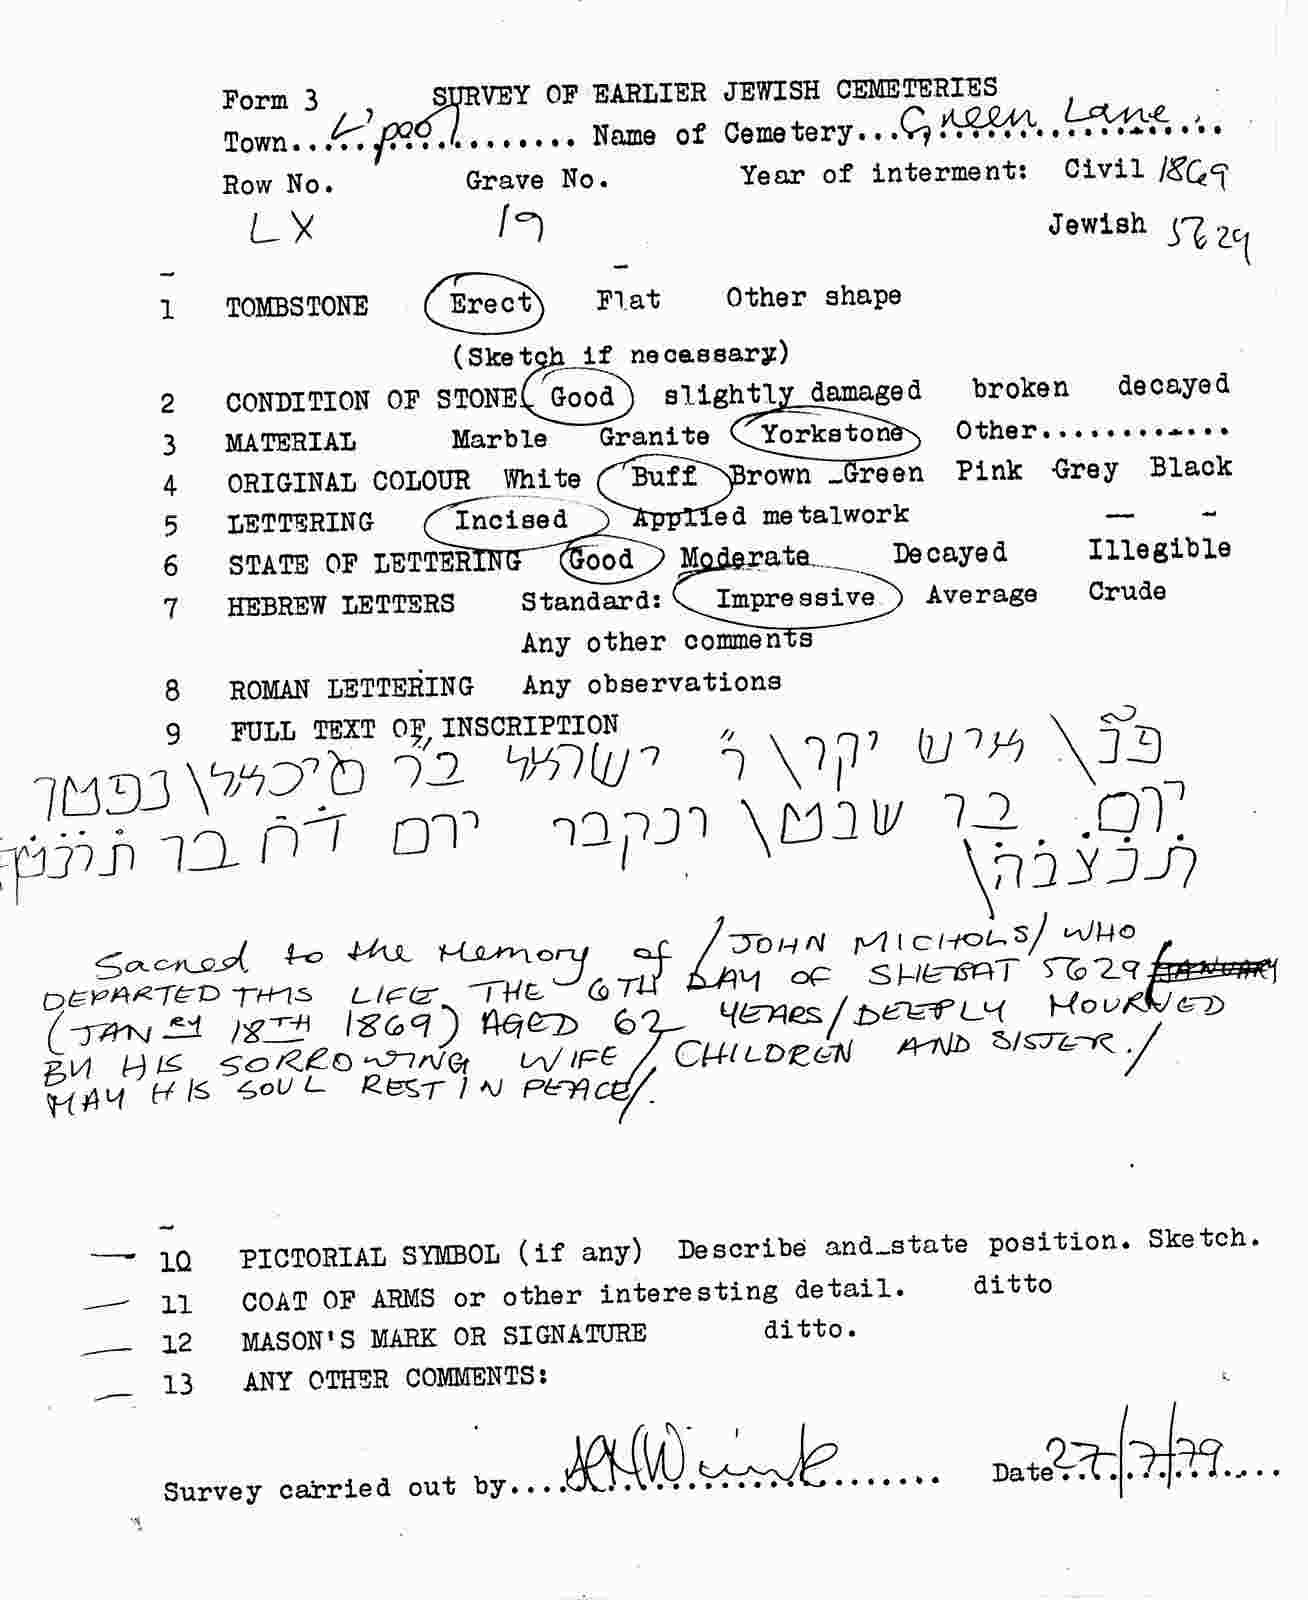 Form 3 SURVEY OF EARLIER JEWISH CEMETERIES
Town...L'pool........... Name of Cemetery...Green Lane...
Row No. Grave No. Year of interment: Civil 1869
LX 19 Jewish 5629
1 TOMBSTONE Erect Flat Other shape
(Sketch if necessary)
2 CONDITION OF STONE Good slightly damaged broken decayed
3 MATERIAL Marble Granite Yorkstone Other.............
4 ORIGINAL COLOUR White Buff Brown Green Pink Grey Black
5 LETTERING Incised Applied metalwork
6 STATE OF LETTERING Good Moderate Decayed Illegible
7 HEBREW LETTERS Standard: Impressive Average Crude
Any other comments
8 ROMAN LETTERING Any observations
9 FULL TEXT OF INSCRIPTION
פ״נ\ איש יקר\ ר׳ ישראל בר מיכאל\ נפטר
יום בר שבט\ ונקבר יום ד׳ ח׳ בו
תנצבה\
Sacred to the Memory of / JOHN MICHOLS / WHO
DEPARTED THIS LIFE THE 6TH DAY OF SHEBAT 5629 / JANUARY
(JANRY 18TH 1869) AGED 62 YEARS / DEEPLY MOURNED
BY HIS SORROWING WIFE / CHILDREN AND SISTER. /
MAY HIS SOUL REST IN PEACE /.
10 PICTORIAL SYMBOL (if any) Describe and state position. Sketch.
11 COAT OF ARMS or other interesting detail. ditto
12 MASON'S MARK OR SIGNATURE ditto.
13 ANY OTHER COMMENTS:
Survey carried out by.... Date 27/7/79